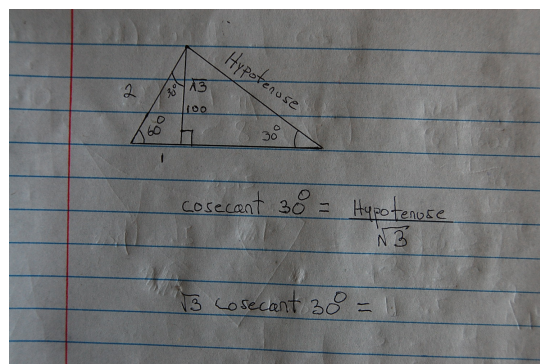 Hypotenuse
2
30°
√3
100
60°
30°
1
cosecant 30° = Hypotenuse
√3
√3 cosecant 30° =